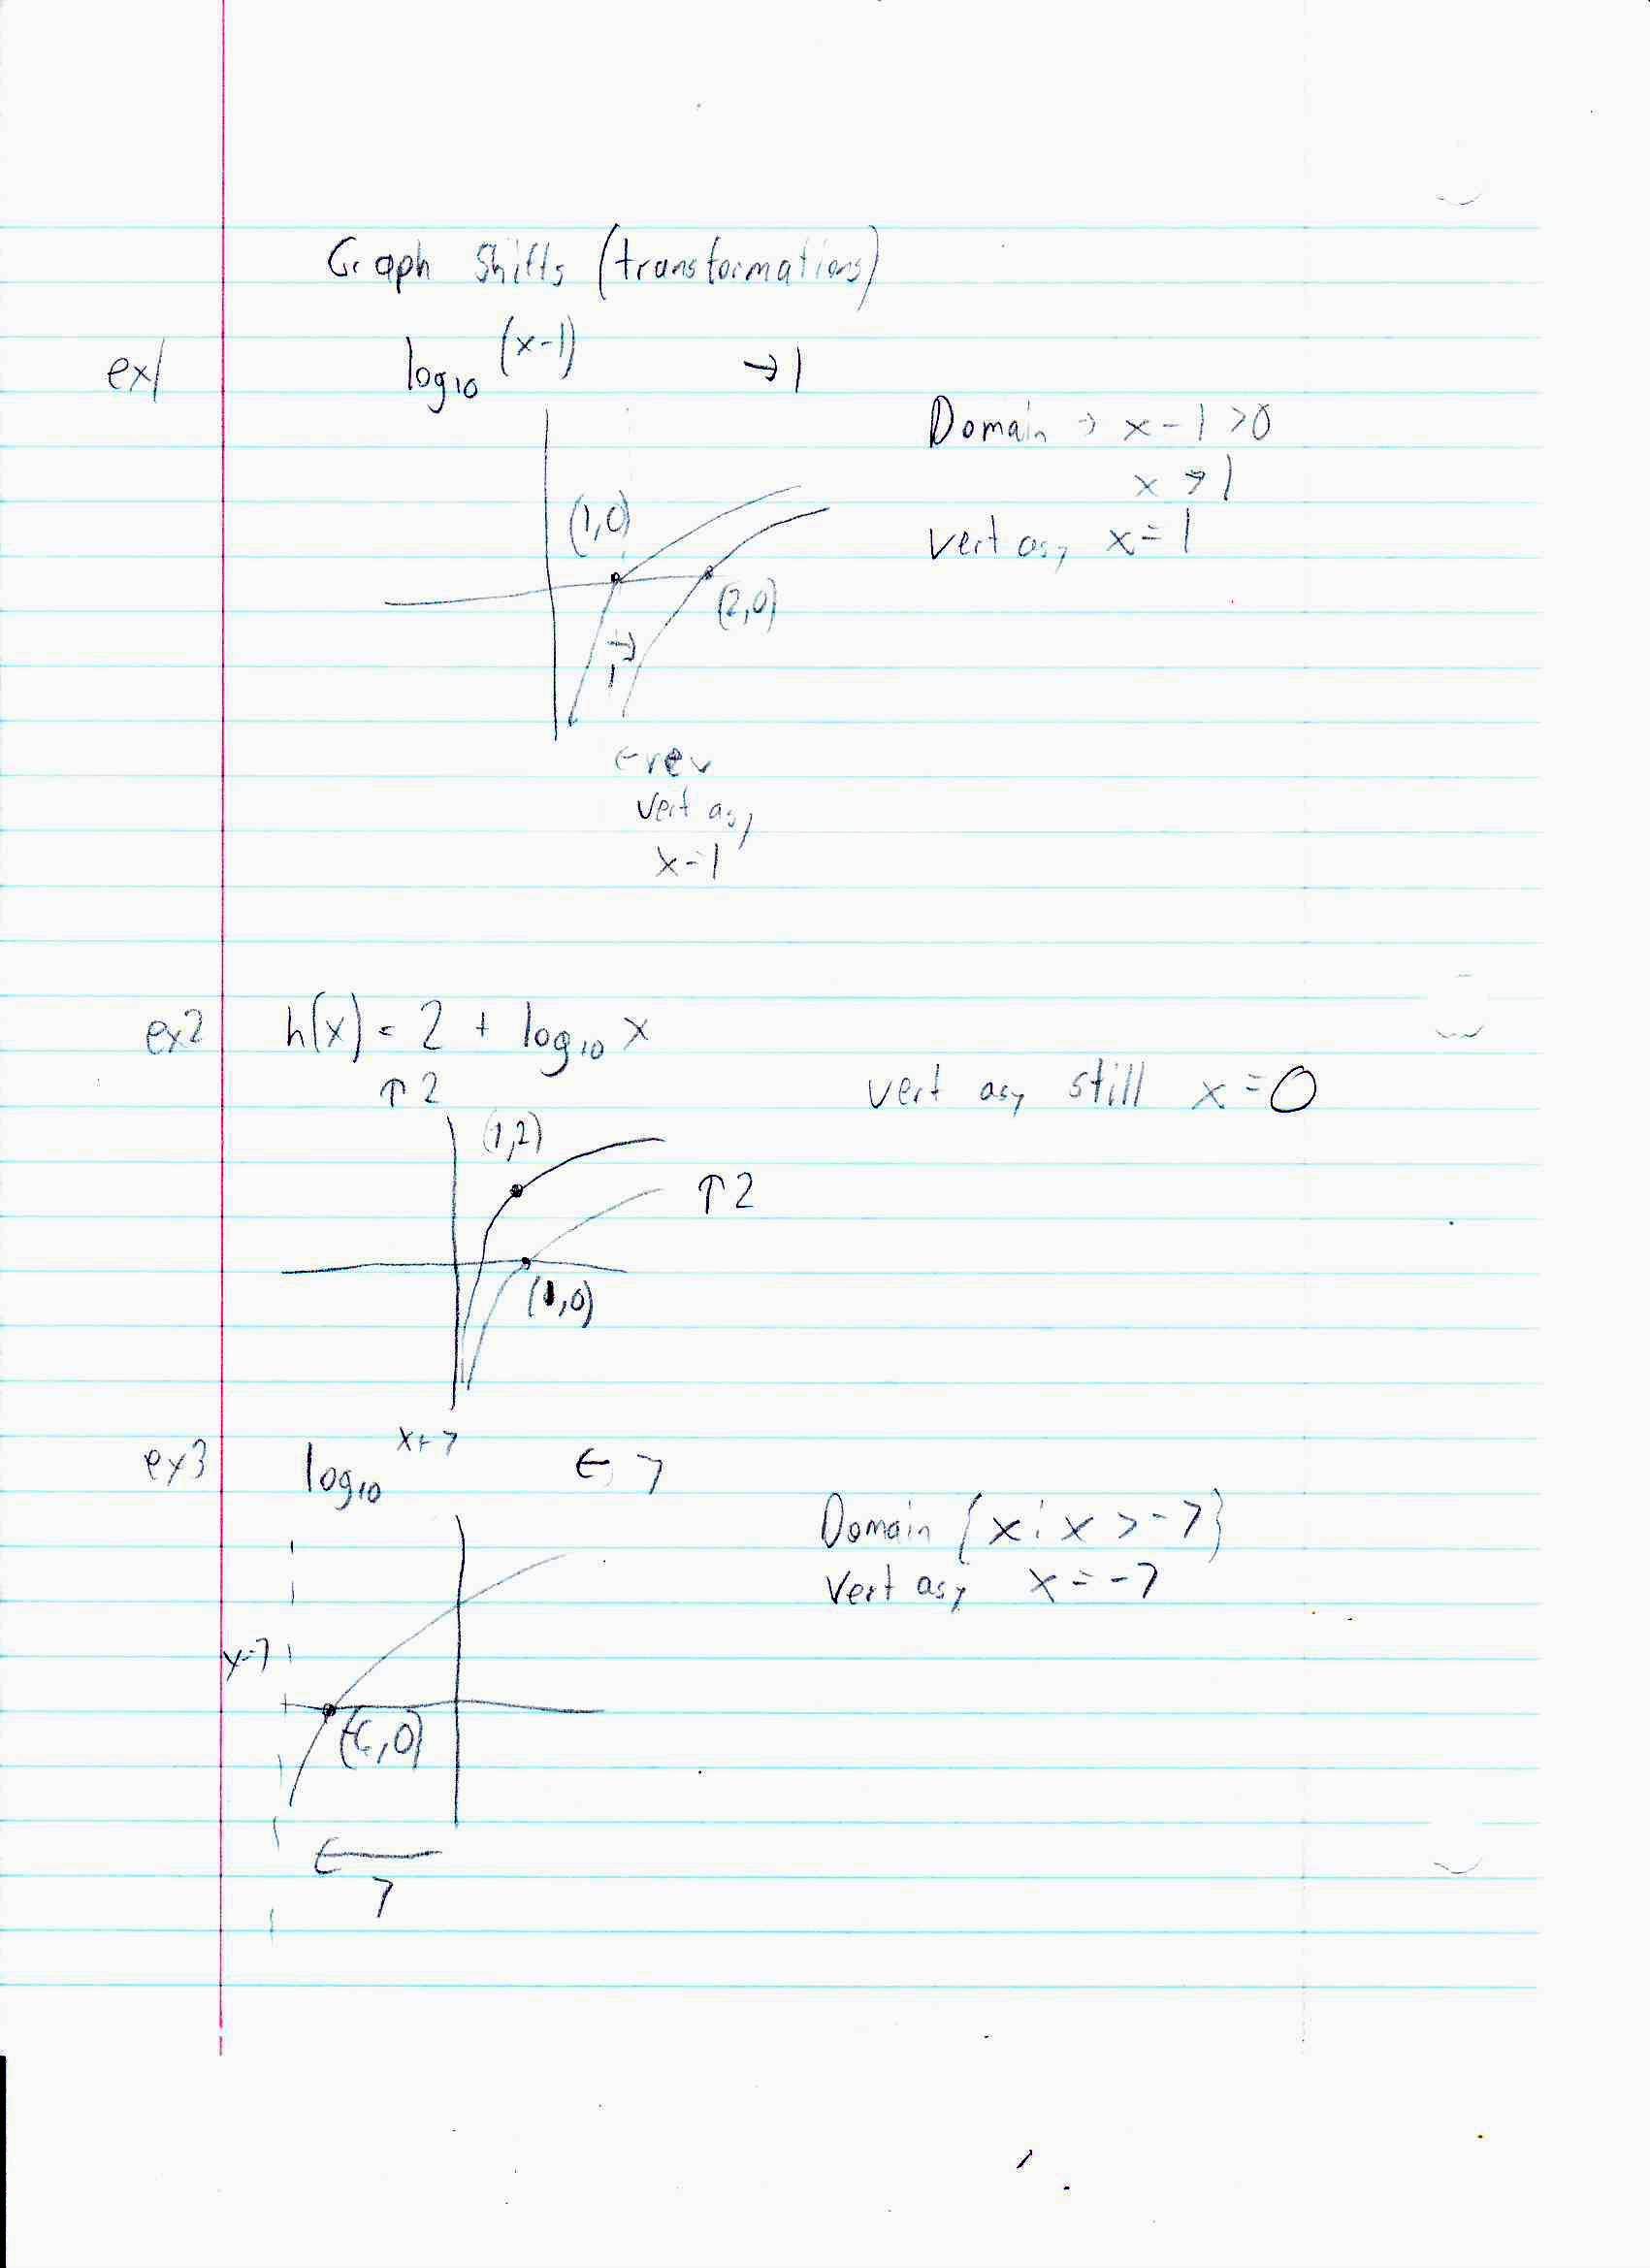 Graph Shifts (transformations)
ex1 log₁₀ (x-1) →1
Domain → x-1>0
x >1
vert asy x=1
(1,0)
(2,0)
→
1
vert asy
x=1
ex2 h(x) = 2 + log₁₀ x
↑2
vert asy still x=0
(1,2)
↑2
(1,0)
ex3 log₁₀ x+7 ← 7
Domain {x: x>-7}
Vert asy x=-7
x=-7
(-6,0)
←
7